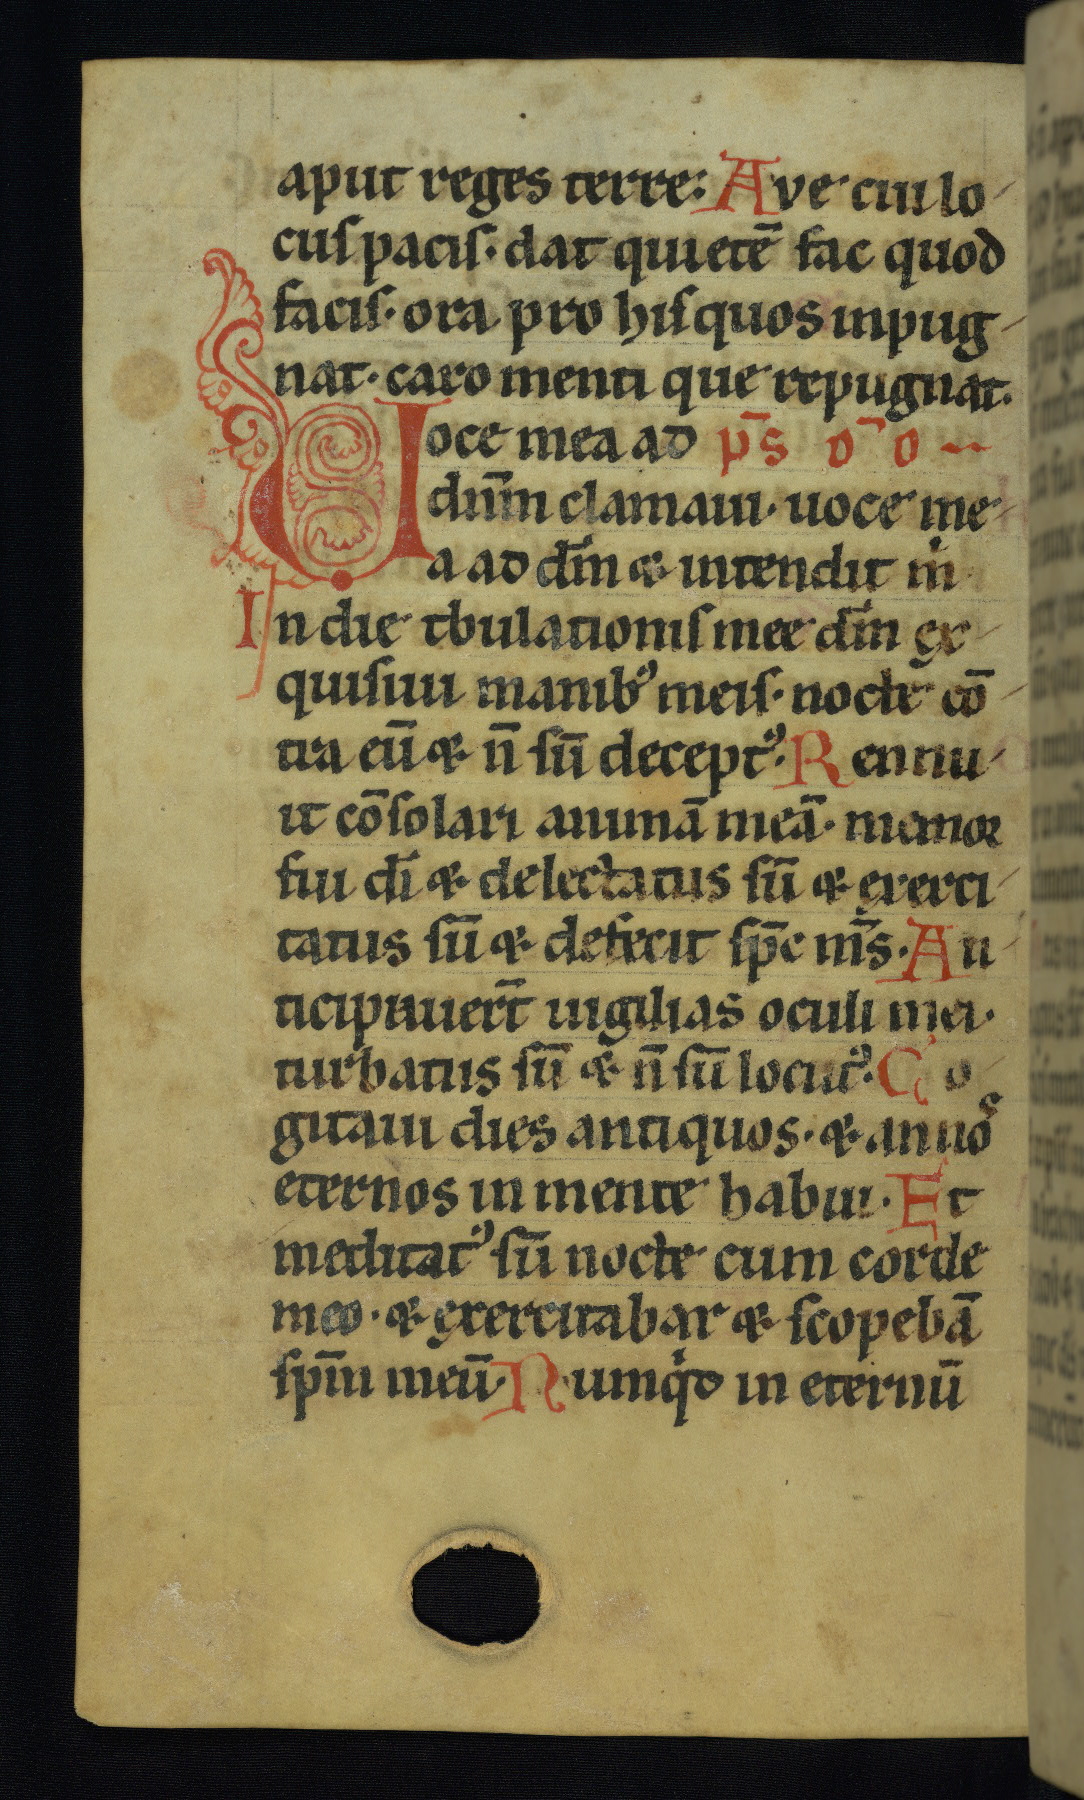 aput reges terre: Ave cui lo
cus pacis· dat quietē fac quod
facis· ora pro his quos inpug
nat· caro menti que repugnat·
Voce mea ad p̄s d̄d
dnm̄ clamaui· uoce me
a ad dm̄ & intendit m̄
In die tbulationis mee dm̄ ex
quisiui manibꝰ meis· nocte cō
tra eū & n̄ sū deceptꝰ· Rennu
it cōsolari animā meā· memor
fui dī & delectatus sū & exerci
tatus sū & defecit sp̄c m̄s· An
ticipauert̄ uigilias oculi mei·
turbatus sū & n̄ sū locutꝰ· Co
gitaui dies antiquos· & annos
eternos in mente habui· Et
meditatꝰ sū nocte cum corde
meo· & exercitabar & scopebā
spm̄ meū· Numqd in eternū